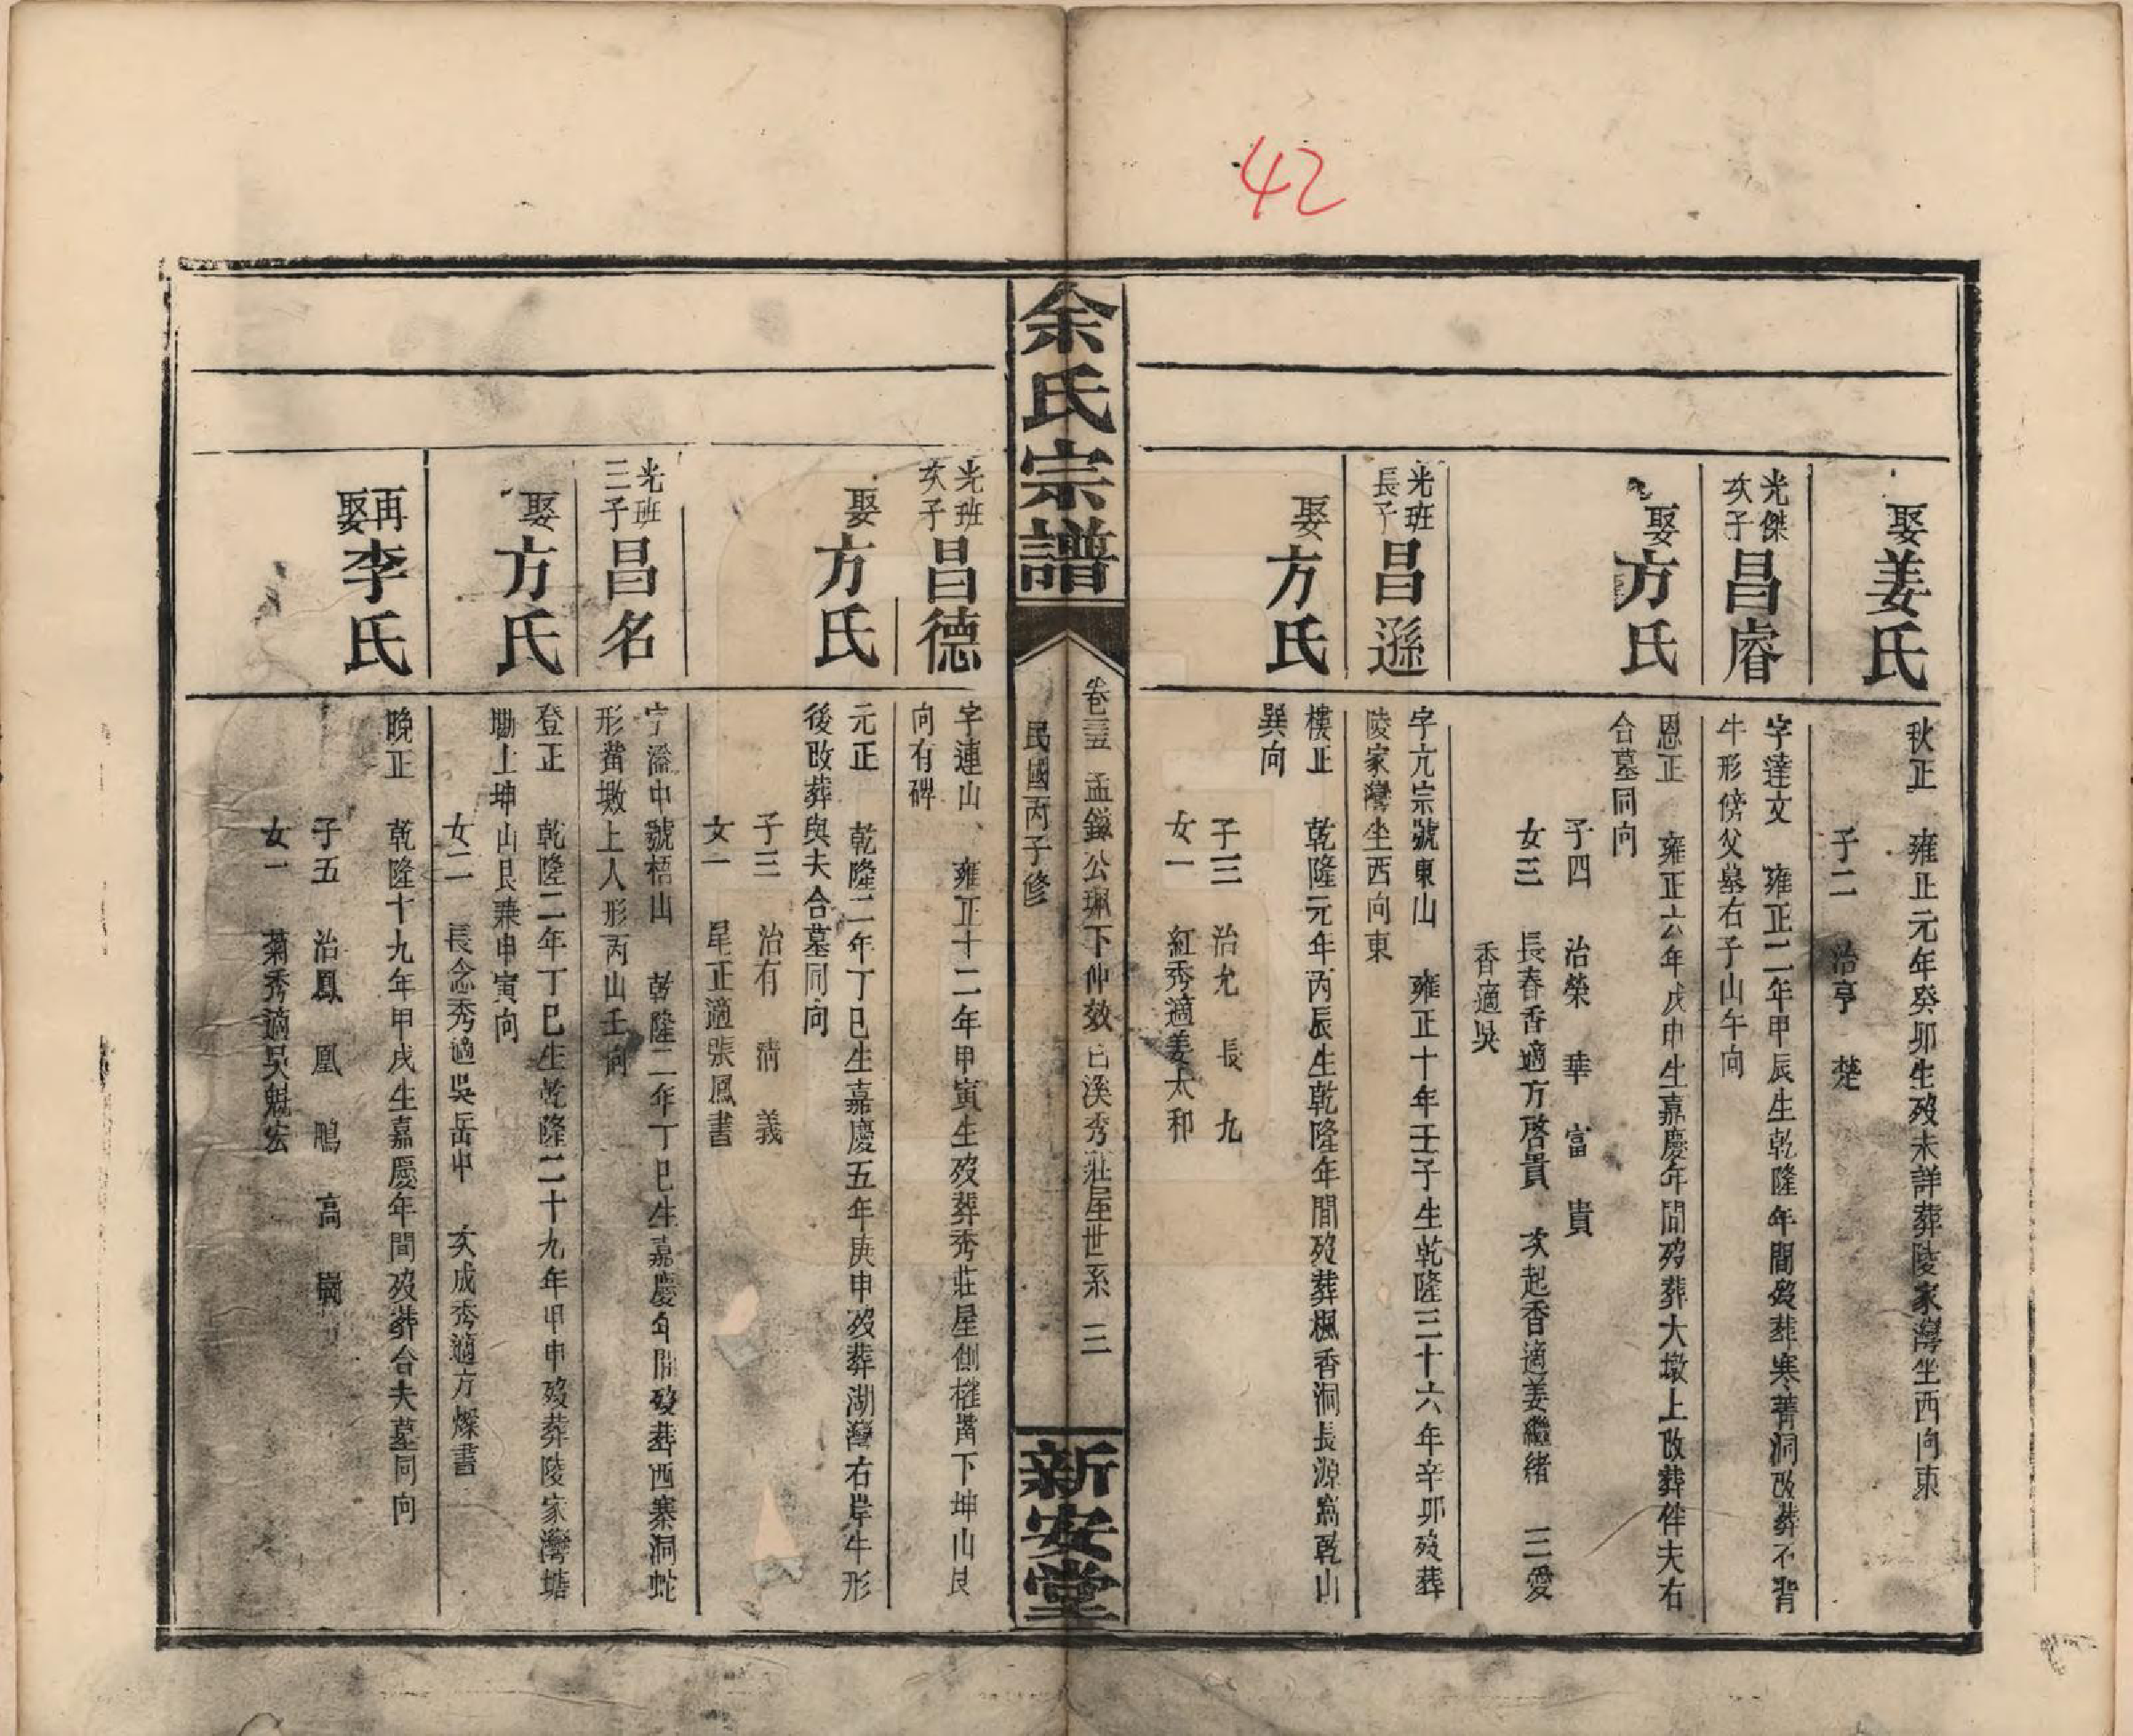 42
娶姜氏
秋正　雍正元年癸卯生歿未詳葬陵家灣坐西向東
子二　治亨　楚
光傑
次子
昌睿
字達文　雍正二年甲辰生乾隆年間歿葬寒菁洞改葬不背
牛形傍父墓右子山午向
娶方氏
恩正　雍正六年戊申生嘉慶年間歿葬大墩上改葬伴夫右
合墓同向
子四　治榮　華　富　貴
女三　長春香適方啓貴　次起香適姜繼緒　三愛
香適吳
光班
長子
昌遜
字亢宗號東山　雍正十年壬子生乾隆三十六年辛卯歿葬
陵家灣坐西向東
娶方氏
樓正　乾隆元年丙辰生乾隆年間歿葬楓香洞長源窩乾山
巽向
子三　治允　長　九
女一　紅秀適姜太和
余氏宗譜
卷三五　孟鎰公珮下仲效已溪秀莊屋世系　三
民國丙子修
新安堂
光班
次子
昌德
字連山　雍正十二年甲寅生歿葬秀莊屋側權嘴下坤山艮
向有碑
娶方氏
元正　乾隆二年丁巳生嘉慶五年庚申歿葬湖灣右岸牛形
後改葬與夫合墓同向
子三　治有　清　義
女一　星正適張鳳書
光班
三子
昌名
字溢中號梧山　乾隆二年丁巳生嘉慶年間歿葬西寨洞蛇
形黃墩上人形丙山壬向
娶方氏
登正　乾隆二年丁巳生乾隆二十九年甲申歿葬陵家灣塘
塝上坤山艮兼申寅向
女二　長念秀適吳岳中　次成秀適方燦書
再娶李氏
晚正　乾隆十九年甲戌生嘉慶年間歿葬合夫墓同向
子五　治鳳　凰　鵰　高　崗
女一　菊秀適吳魁宏